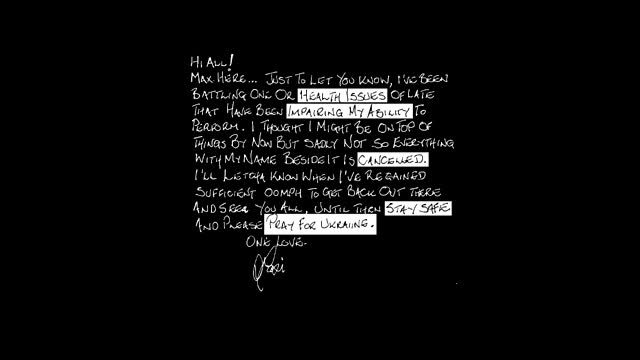 HI ALL!
MAX HERE... JUST TO LET YOU KNOW, I'VE BEEN
BATTLING ONE OR HEALTH ISSUES OF LATE
THAT HAVE BEEN IMPAIRING MY ABILITY TO
PERFORM. I THOUGHT I MIGHT BE ON TOP OF
THINGS BY NOW BUT SADLY NOT SO EVERYTHING
WITH MY NAME BESIDE IT IS CANCELLED.
I'LL LETCHA KNOW WHEN I'VE REGAINED
SUFFICIENT OOMPH TO GET BACK OUT THERE
AND SEE YOU ALL, UNTIL THEN STAY SAFE
AND PLEASE PRAY FOR UKRAINE.
ONE LOVE.